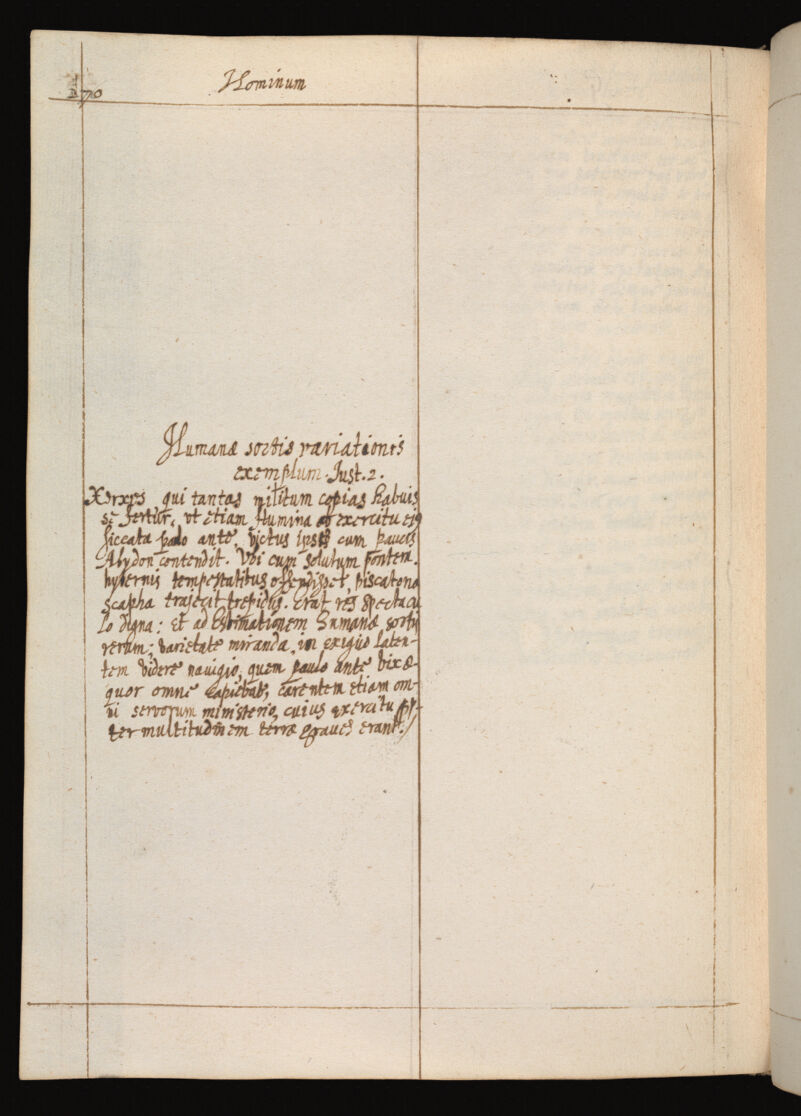 Hominum
Humanæ sortis variationis
exemplum. Just. 2.
Xerxes qui tantas militum copias habuis
se fertur, ut etiam flumina ab exercitu ejꝰ
siccata palo ante, victus ipse cum paucis
Abydon contendit. Ubi cum solutum pontem
hybernis tempestatibus offendisset, piscatoria
scapha trajecit trepidus. erat res spectacu
lo digna: Et ad estimationem humanæ sortis
rerum; varietate miranda, in exiguo laten-
tem videre nauigio, quem paulo ante vix æ-
quor omne capiebat, carentem etiam om-
ni servorum ministerio, cuius exercitu pp-
ter multitudinem terræ graues erant.